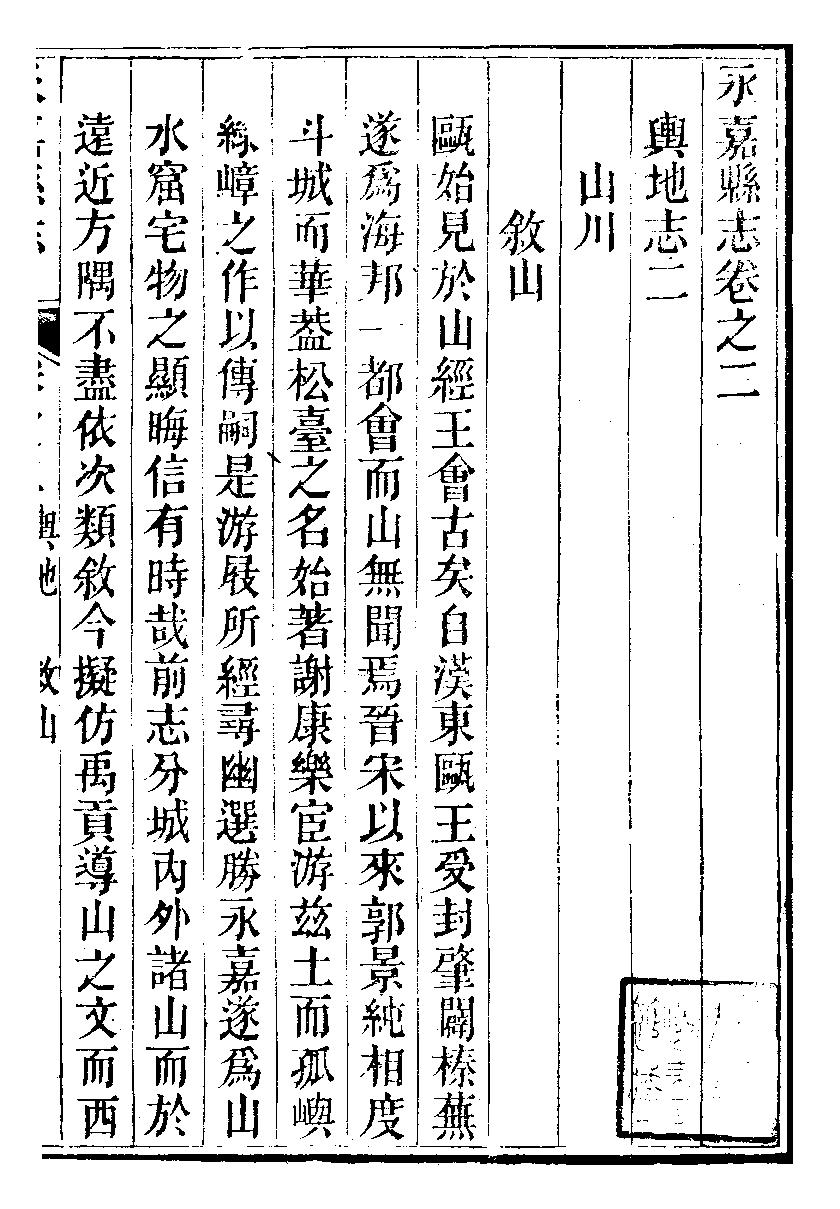 永嘉縣志卷之二
輿地志二
山川
敘山
甌始見於山經王會古矣自漢東甌王受封肇闢榛蕪
遂爲海邦一都會而山無聞焉晉宋以來郭景純相度
斗城而華葢松臺之名始著謝康樂宦游兹土而孤嶼
綠嶂之作以傳嗣是游屐所經尋幽選勝永嘉遂爲山
水窟宅物之顯晦信有時哉前志分城內外諸山而於
遠近方隅不盡依次類敘今擬仿禹貢導山之文而西
輿地 敘山